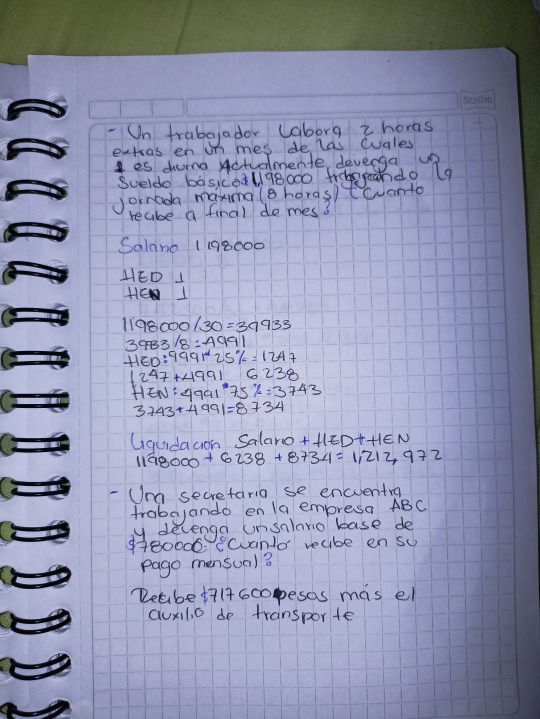 Scribe
- Un trabajador labora 2 horas
extras en un mes de las cuales
1 es diurna Actualmente devenga un
Sueldo básico $1,198000 trabajando la
jornada maxima (8 horas) ¿Cuanto
recibe a final de mes?
Salario 1198000
HED 1
HEN 1
1198000/30=39933
3983/8=4991
HED:9991*25%=1247
1247+4991 6238
HEN:4991*75%=3743
3743+4991=8734
Liquidacion Salario+HED+HEN
1198000+6238+8734=1,212,972
- Una secretaria se encuentra
trabajando en la empresa ABC
y devenga un salario base de
$780000. ¿Cuanto recibe en su
pago mensual?
Recibe $717600 pesos más el
auxilio de transporte